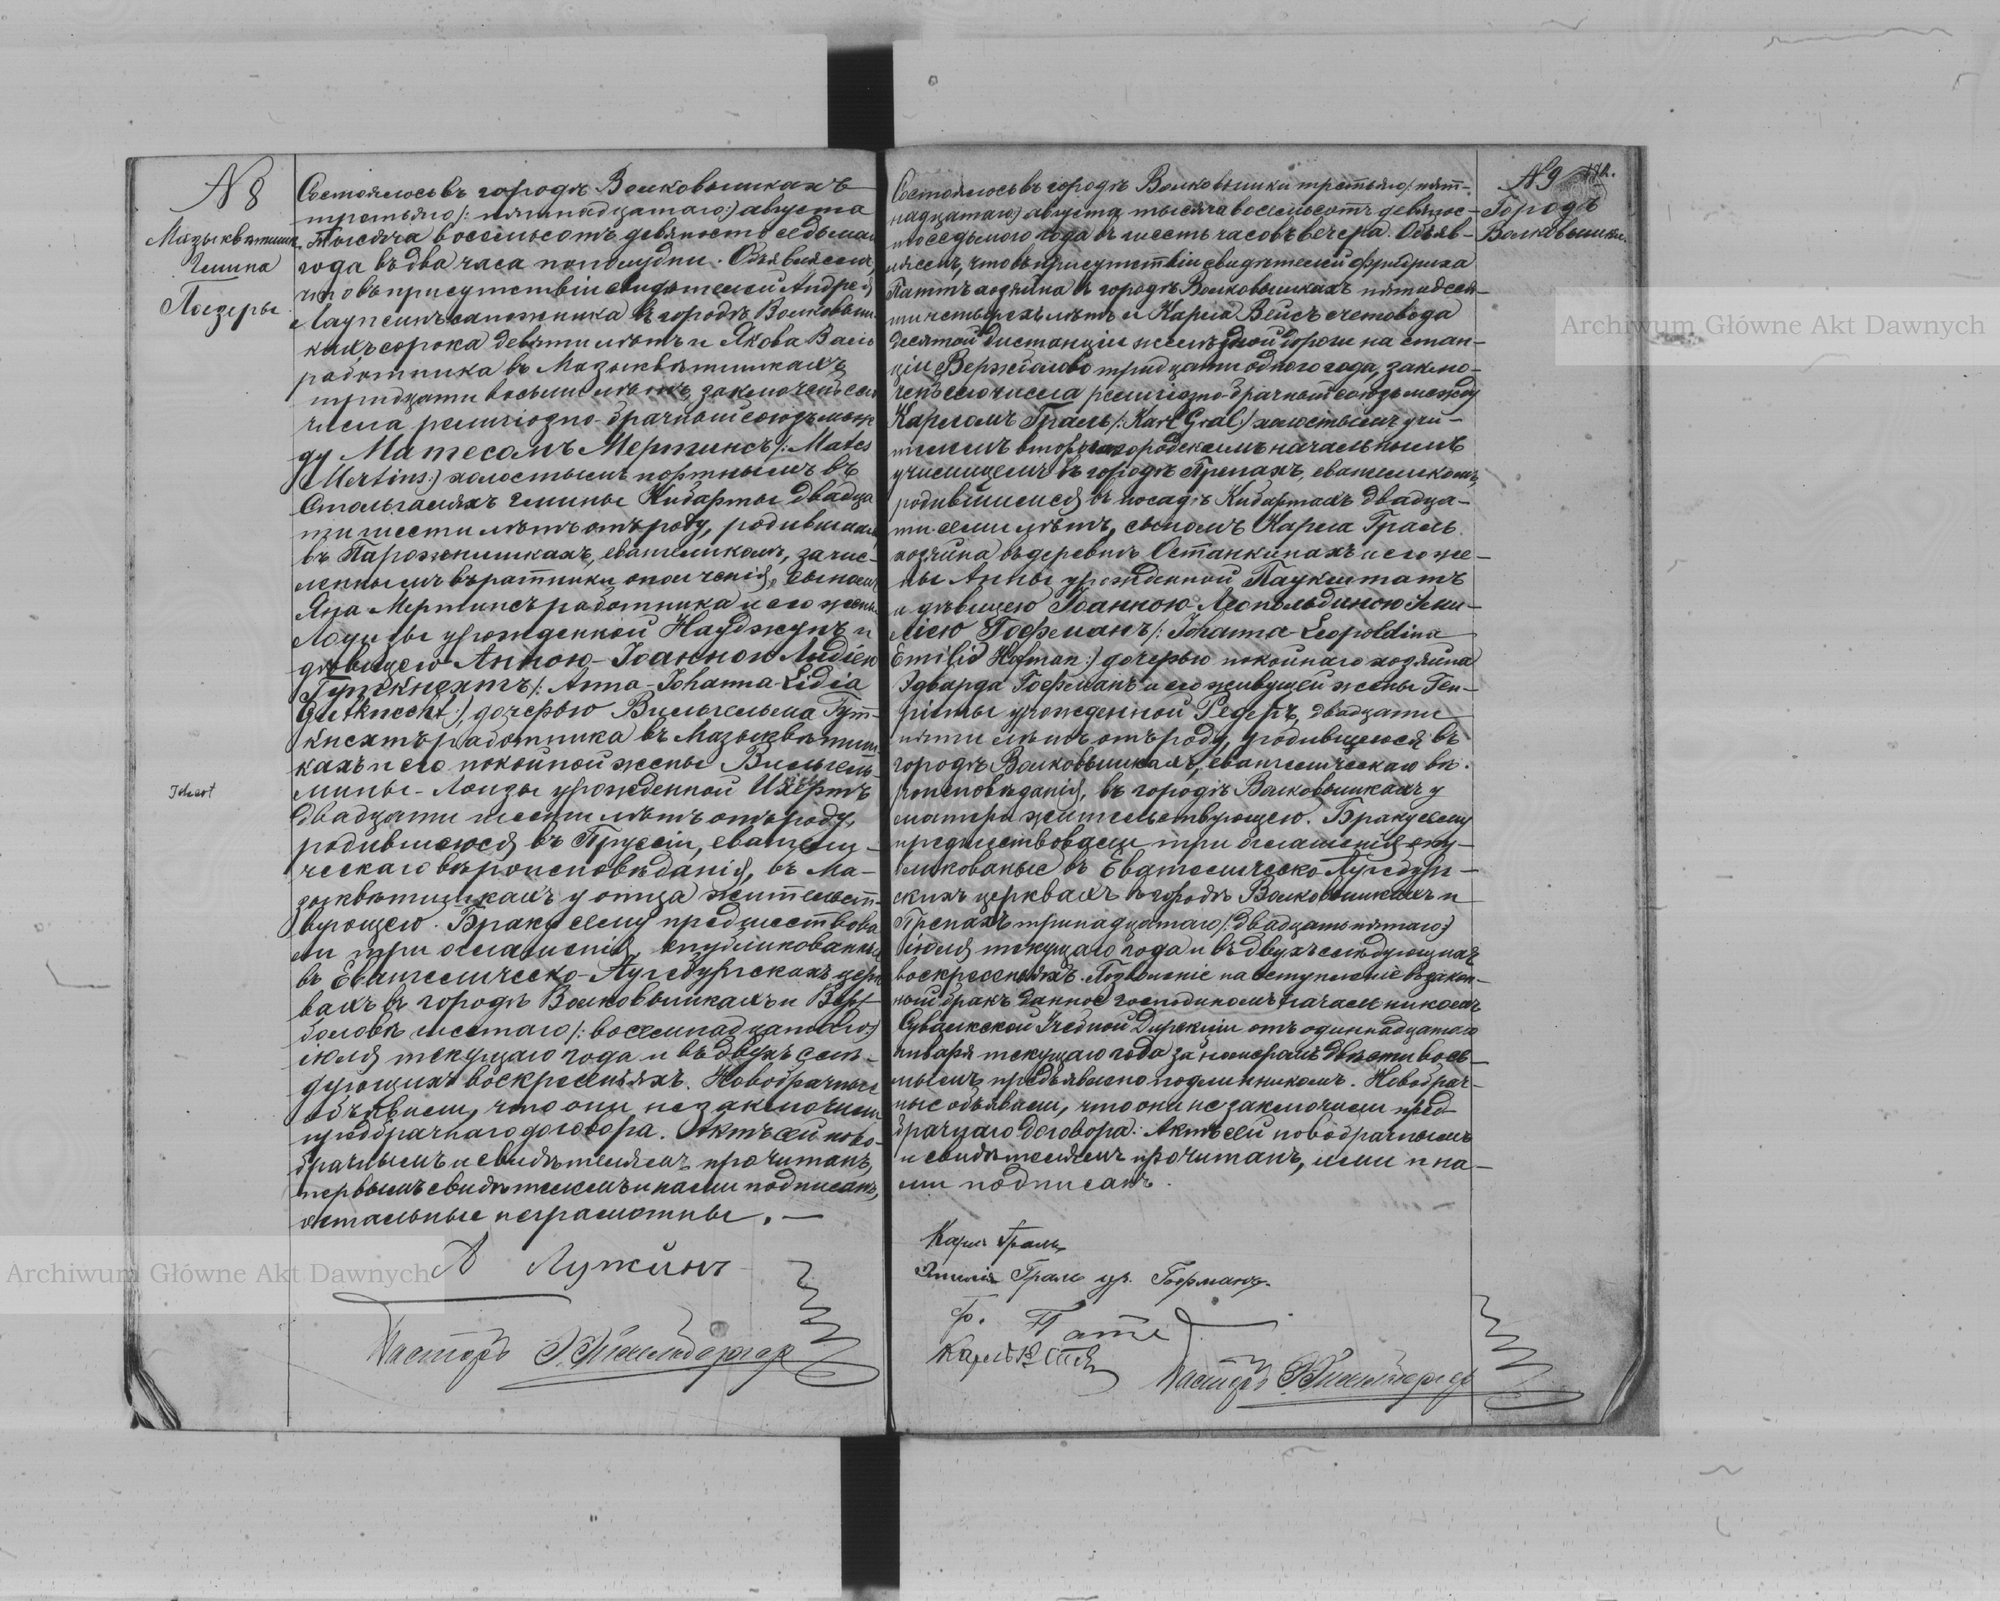 N 8
Мазыкветишки
Гмина
Позеры
Состоялось въ городѣ Волковышкахъ
третьяго /: пятнадцатаго :/ августа
тысяча восемьсотъ девяносто седьмаго
года въ два часа пополудни. Объявляемъ,
что въ присутствіи свидѣтелей Андрея
сапожника въ городѣ Волковыш-
кахъ сорока девяти лѣтъ и Якова
работника въ Мазыкветишкахъ
тридцати восьми лѣтъ, заключенъ сего
числа религіозно-брачный союзъ меж-
ду Матесомъ Мертинсъ /: Mates
Mertins :/ холостымъ портнымъ въ
гмины Кибарты двадца-
ти шести лѣтъ отъ роду, родившимся
въ евангеликомъ, зачис-
леннымъ въ ратники ополченія, сыномъ
Яна Мертинсъ работника и его жены
урожденной Науджунъ и
дѣвицею Анною-Іоанною Лидіею
Гуткнехтъ /: Anna-Johanna-Lidia
Gutknecht :/, дочерью Вильгельма Гут-
кнехтъ работника въ Мазыкветиш-
кахъ и его покойной жены Вильгель-
мины-Лоизы урожденной Ихертъ
Ichert
двадцати шести лѣтъ отъ роду,
родившеюся въ Пруссіи, евангели-
ческаго вѣроисповѣданія, въ Ма-
зыкветишкахъ у отца жительст-
вующею. Браку сему предшествова-
ли три оглашенія, опубликованныя
въ Евангелическо-Аугсбургскихъ церк-
вахъ въ городѣ Волковышкахъ и Верж-
боловѣ шестаго /: восемнадцатаго :/
іюля текущаго года и въ двухъ слѣ-
дующихъ воскресеньяхъ. Новобрачные
объявили, что они не заключили
предбрачнаго договора. Актъ сей ново-
брачнымъ и свидѣтелямъ прочитанъ,
первымъ свидѣтелемъ и нами подписанъ,
остальные неграмотны. —
А
Пасторъ
N 9
Городъ
Волковышки
Состоялось въ городѣ Волковышки третьяго /: пят-
надцатаго :/ августа тысяча восемьсотъ девянос-
то седьмого года въ шесть часовъ вечера. Объяв-
ляемъ, что въ присутствіи свидѣтелей Фридриха
Паттъ хозяина въ городѣ Волковышкахъ пятидеся-
ти четырехъ лѣтъ и Карла Вейсъ счетовода
десятой дистанціи желѣзной дороги на стан-
ціи Вержболово тридцати одного года, заклю-
ченъ сего числа религіозно-брачный союзъ между
Карломъ Граль /: Karl Gral :/ холостымъ учи-
телемъ городскимъ начальнымъ
училищемъ въ городѣ Пренахъ, евангеликомъ,
родившимся въ посадѣ Кибартахъ двадца-
ти семи лѣтъ, сыномъ Карла Граль
хозяина въ деревнѣ Останкинахъ и его же-
ны Анны урожденной Паукштатъ
и дѣвицею Іоанною-Леопольдиною Эми-
ліею Гофманъ /: Johanna-Leopoldina
Emilia Hofman :/ дочерью покойнаго хозяина
Эдварда Гофманъ и его живущей жены Ген-
ріеты урожденной Редеръ, двадцати
пяти лѣтъ отъ роду, родившеюся въ
городѣ Волковышкахъ, евангелическаго вѣ-
роисповѣданія, въ городѣ Волковышкахъ у
матери жительствующею. Браку сему
предшествовали три оглашенія опу-
бликованные въ Евангелическо-Аугсбург-
скихъ церквахъ въ городѣ Волковышкахъ и
Пренахъ тринадцатаго /: двадцать пятаго :/
іюля текущаго года и въ двухъ слѣдующихъ
воскресеньяхъ. Позволеніе на вступленіе въ закон-
ный бракъ данное господиномъ Начальникомъ
Сувалкской Учебной Дирекціи отъ одиннадцатаго
января текущаго года за номеромъ двѣсти вось-
мымъ предъявлено подлинникомъ. Новобрач-
ные объявили, что они не заключили пред-
брачнаго договора. Актъ сей новобрачнымъ
и свидѣтелямъ прочитанъ, ими и на-
ми подписанъ.
Карлъ Граль
Эмилія Граль ур. Гофманъ.
Ф. Патъ
Карлъ
Пасторъ
Archiwum Główne Akt Dawnych
Archiwum Główne Akt Dawnych